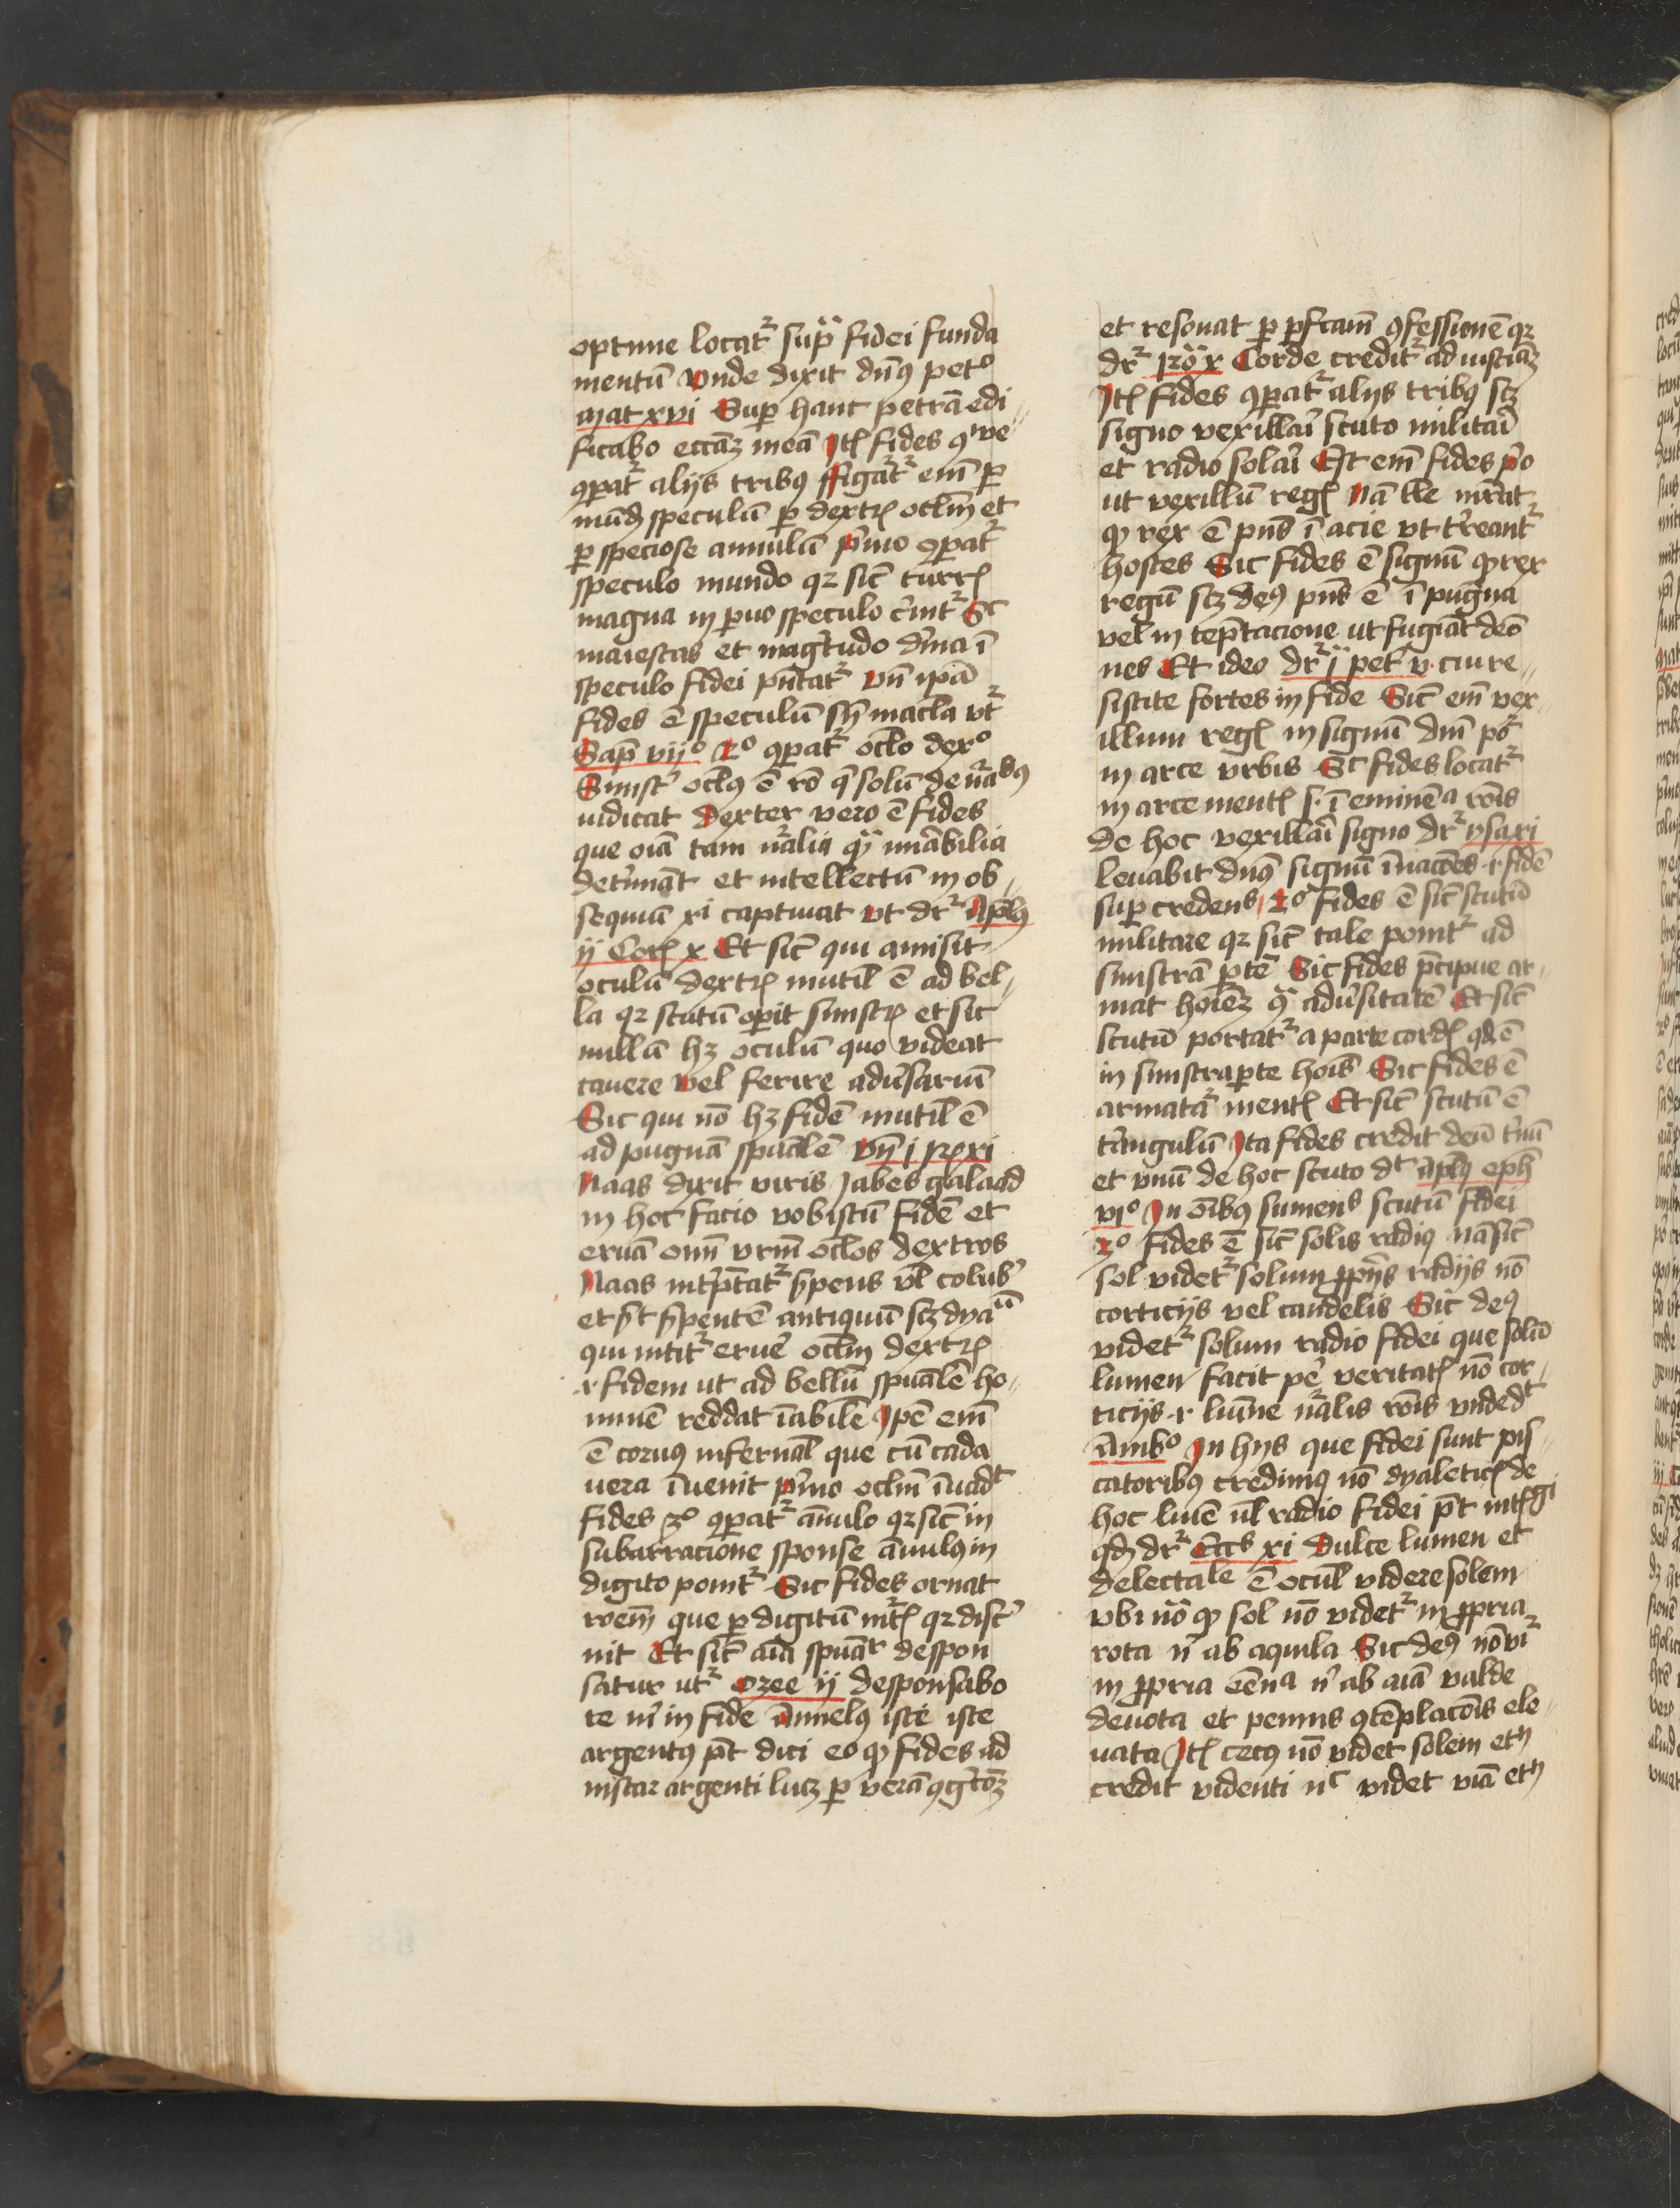 optime locat᷑ supͣ fidei funda
mentū Vnde dixit dn̄ꝯ pet°
mat xvi Sup hanc petrā edi
ficabo eccāꝫ meā Itē fides ꝯue
ꝯpat᷑ alijs tribꝯ ffigat᷑ em̄ ꝑ
mūdū speculū ꝑ dextrꝭ oclm̄ et
ꝑ speciose annulū p̄mo ꝯpat᷑
speculo mundo qꝛ sic̄ turrꝭ
magna in puo speculo cͥnit᷑ Sic
maiestas et magͥtudo dͥina ī
speculo fidei pn̄tat᷑ vn̄ ip̄a
fides ē speculū sn̄ macla vt᷑
Sap̄ vij° 2° ꝯpat᷑ oclo dex°
Sinistͥ oclꝯ ē rō q̄ solū de nͣabꝯ
iudicat Dexter vero ē fides
que oīa tam nͣalia qͣ mͥabilia
det̄minat et intellectū in ob
sequiū xi captiuat vt dr᷑ Apl̄ꝯ
ij Corꝭ x Et sic̄ qui amisit
oculū dextrꝭ inutil̄ ē ad bel
la qꝛ scutū opit sinistrꝭ et sic
nullū hꝫ oculū quo videat
cauere vel ferire adūsariū
Sic qui nō hꝫ fidē inutil̄ ē
ad pugnā spūalē vn̄ i Rͦ xi
Naas dixit viris Iabes galaad
in hoc facio vobiscū fidē et
eruā om̄ vrm̄ oclos dextros
Naas int̄ptat᷑ s̄pens vl̄ colubͤ
et sͭ s̄pentē antiquū scꝫ dyaū
qui nitit᷑ eruē oclm̄ dextrꝭ
.i. fidem ut ad bellū spūalē ho
minē reddat īabilē Ipē em̄
ē coruꝯ infernal̄ que cū cada
uera īuenit p̄mo oclm̄ īuadͭ
fides 3° ꝯpat᷑ ānulo qꝛ sic̄ in
subarracione sponse ānulꝯ in
digito ponit᷑ Sic fides ornat
roem̄ que ꝑ digitū intꝭ qꝛ discͤ
nit Et sic̄ aīa spūaͬ despon
satur ut᷑ Ozee ij desponsabo
te mͥ in fide Annelꝯ iste iste
argentꝯ pt̄ dici eo ꝙ fides ad
instar argenti lucꝫ ꝑ verā ꝯgͥcōꝫ
et resonat ꝑ pfcam̄ ꝯfessionē qꝛ
dr᷑ Rō x Corde credit᷑ ad iusciāꝫ
Itē fides ꝯpat᷑ alijs tribꝯ scꝫ
signo vexillaī scuto militaī
et radio solaī Est em̄ fides p̄o
ut vexillū regꝭ Nā ille mr̄at
ꝙ rex ē pn̄s ī acie vt tͤreant᷑
hostes Sic fides ē signū ꝙ rex
regū scꝫ deꝯ pn̄s ē ī pugna
vel in teptacione ut fugiāt demō
nes Et ideo dr᷑ ī pet v cui re
sistite fortes in fide Sic̄ em̄ vex
illum regꝭ in signū dm̄ po᷑
in arce vrbis Sic fides locat᷑
in arce mentꝭ s. ī eminēa rōis
de hoc vexillaī signo dr᷑ ysa xi
Leuabit dn̄ꝯ signū ī nacōes .i. fidē
sup credens 2° fides ē sic̄ scutū
militare qꝛ sic̄ tale ponit᷑ ad
sinistrā ptē Sic fides p̄cipue ar
mat hoīēꝫ ꝯͣ adūsitatē Et sic̄
scutū portat᷑ a parte cordꝭ qd ē
in sinistra pte hoīs Sic fides ē
armatͣa mentꝭ Et sic̄ scutū ē
tͥangulū Ita fides credit deū tͥnū
et vnū de hoc scuto dͭ apl̄ꝯ eph̄
vi° In oībꝯ sumens scutū fidei
3° fides ē sic̄ solis radiꝯ Nā sic̄
sol videt᷑ solum ꝓprijs radijs nō
corticijs vel candelis Sic deꝯ
videt᷑ solum radio fidei que solū
lumen facit pͤ veritatꝭ nō cor
ticijs .i. lumīe nͣalis rōis vnde dͭ
Amb° In hijs que fidei sunt pis
catoribꝯ credimꝯ nō dyaleticꝭ de
hoc luīe ul̄ radio fidei pt̄ intꝭgi
qd dr᷑ Eccͨs xi Dulce lumen et
delectale ē ocul̄ videre solem
vbi nō ꝙ sol nō videt᷑ in ꝓpria
rota nͥ ab aquila Sic deꝯ nō vr᷑
in ꝓpria eēnͣa nͥ ab aīa valde
deuota et pennis ꝯtēplacōis ele
uata Itē cecꝯ nō videt solem etn̄
credit videnti nͨ videt viā etn̄